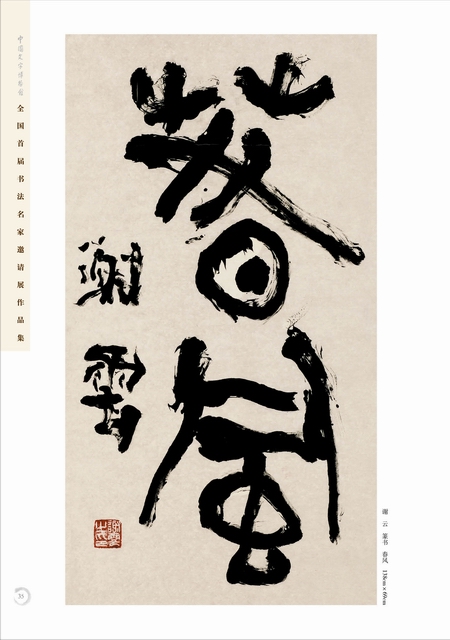 中国文字博物馆
全国首届书法名家邀请展作品集
春风
谢云
谢 云 篆书 春风 138cm×69cm
35